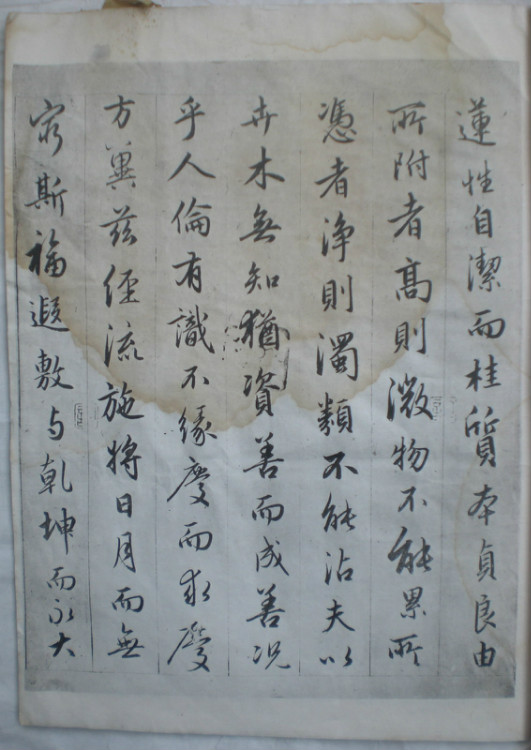 蓮性自潔而桂質本貞良由
所附者高則微物不能累所
憑者淨則濁類不能沾夫以
卉木無知猶資善而成善況
乎人倫有識不緣慶而求慶
方冀茲經流施將日月而無
窮斯福遐敷与乾坤而永大